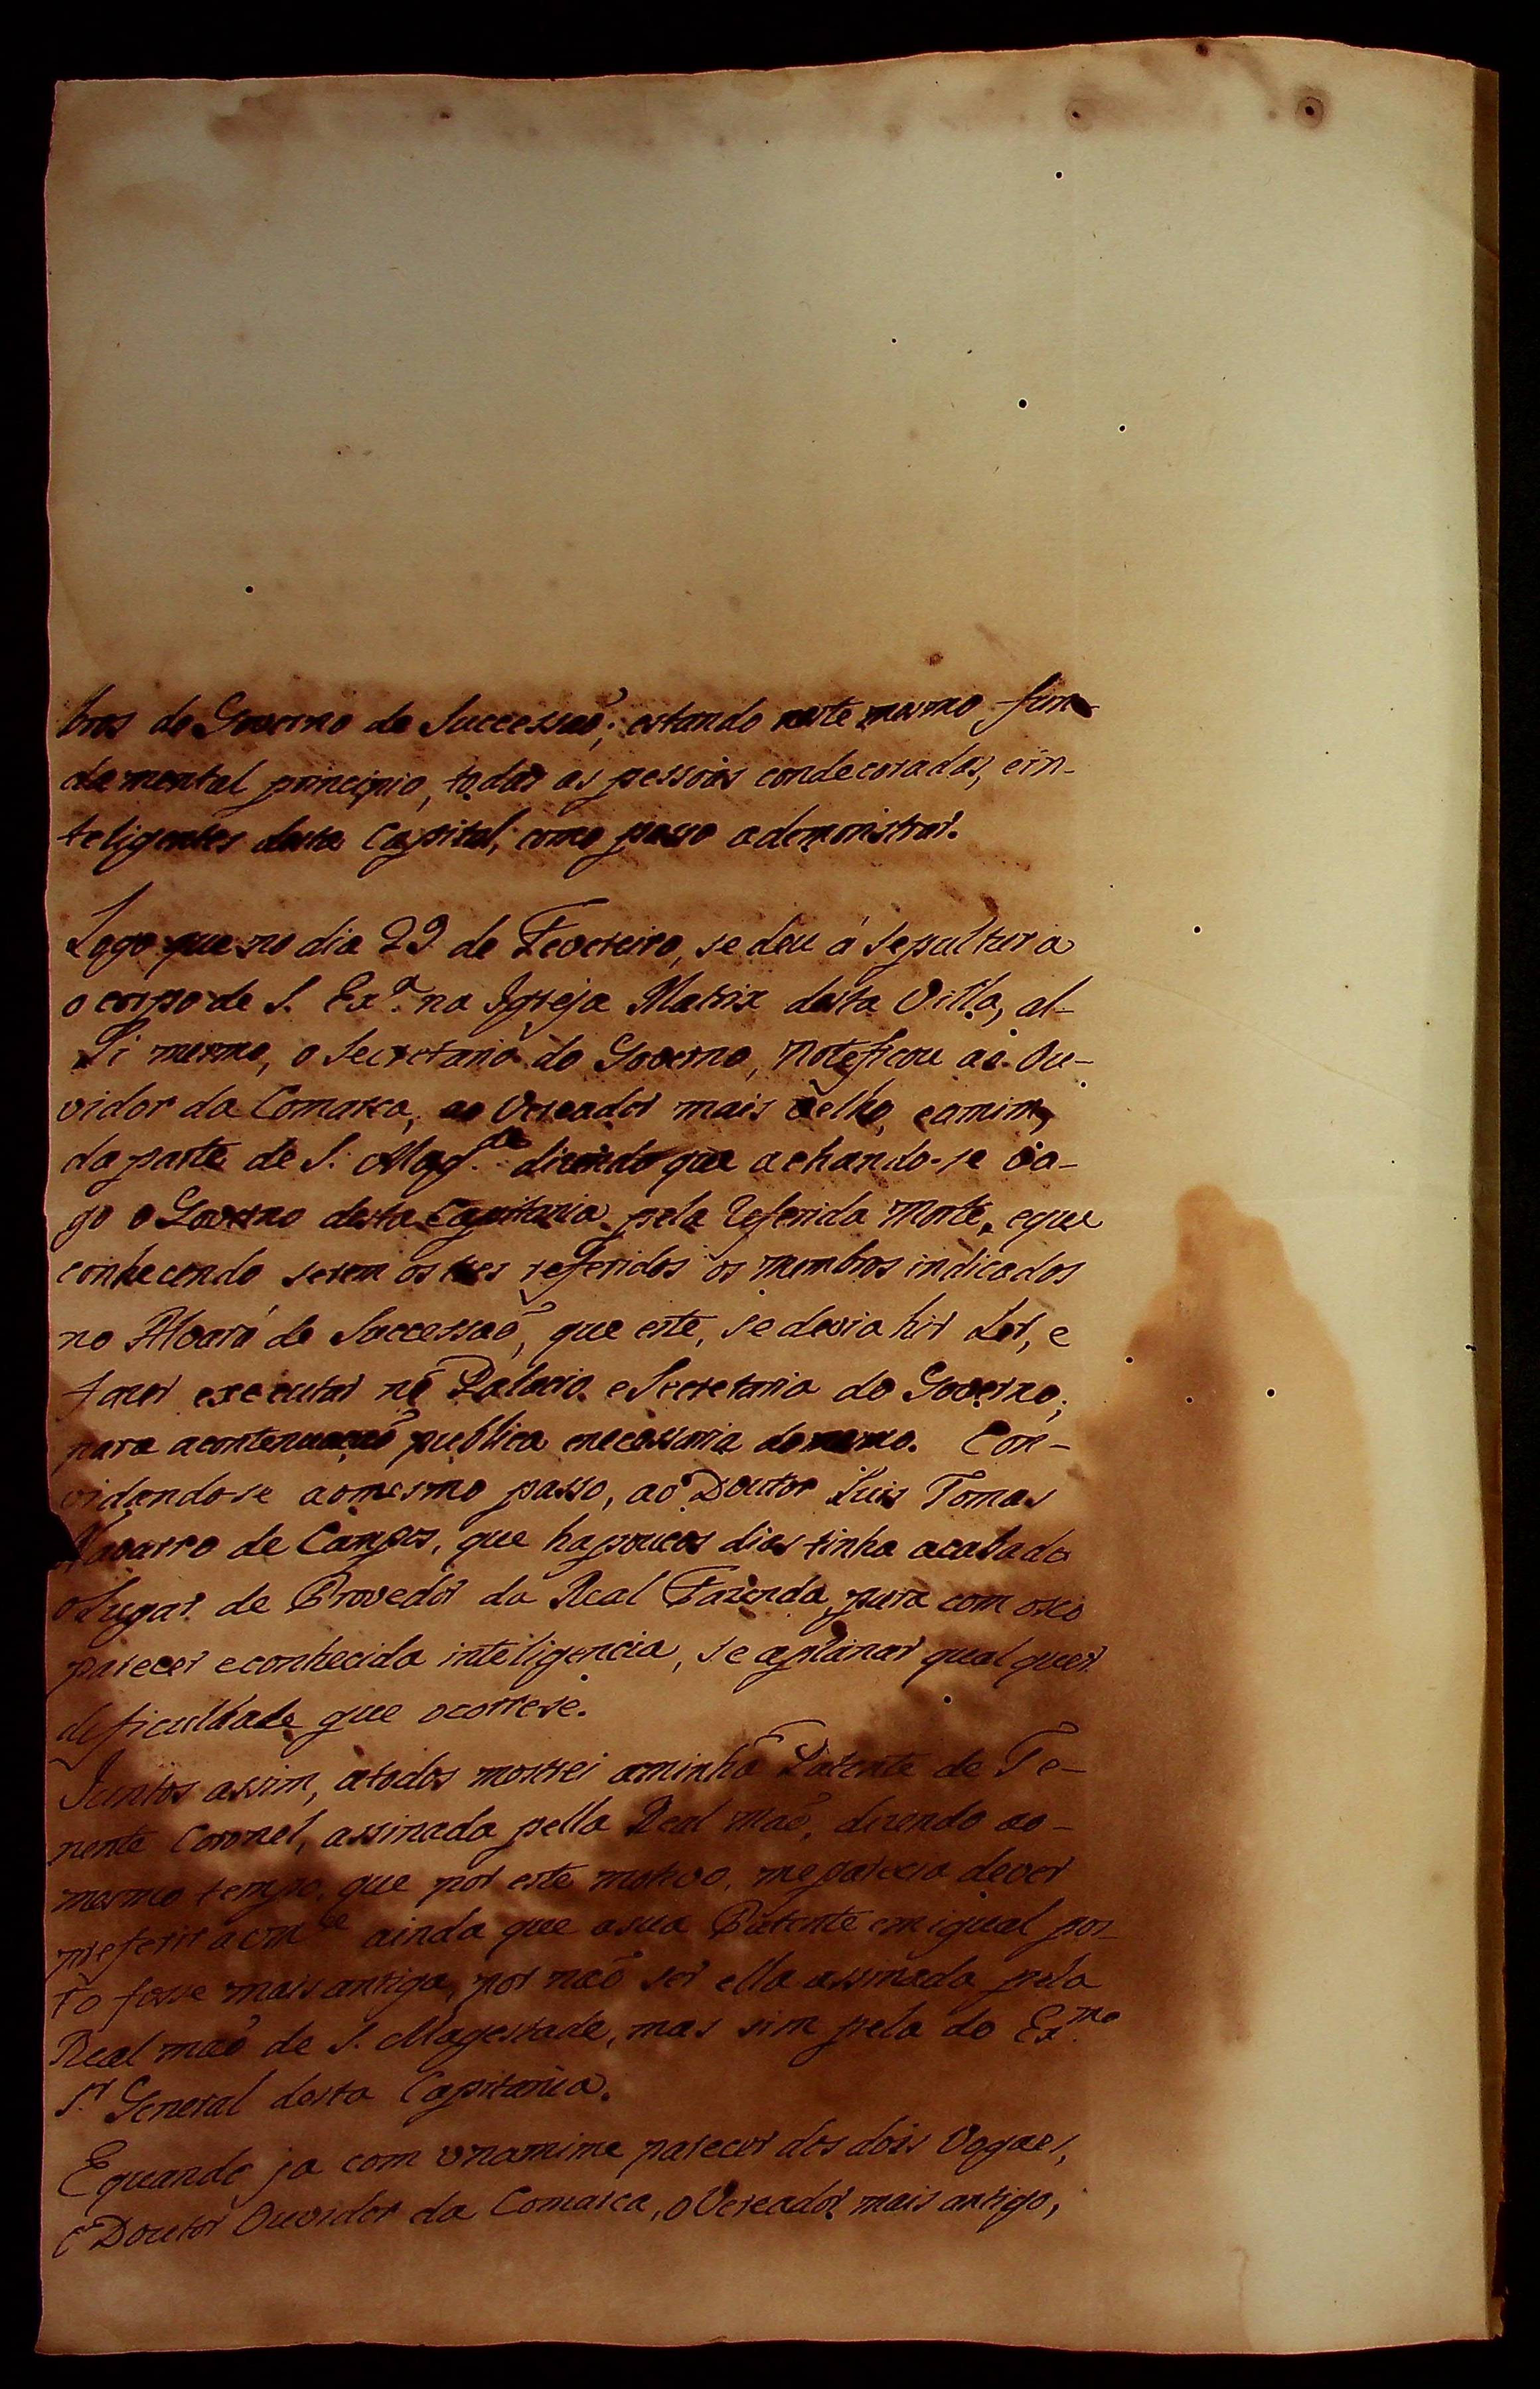 bros do Governo de Successaõ; estando neste mesmo fun-
damental principio, todas as pessoas condecoradas, ein-
teligentes desta Capital, como passo ademonstrar.
Logo que no dia 29 de Fevereiro, se deu á Sepultura
o corpo de S. Exª. na Igreja Matrix desta Villa, al-
li mesmo, o Secretario do Governo, Noteficou ao Ou-
vidor da Comarca, ao Vereador mais velho, eamim,
da parte de S. Magᵈᵉ dizendo que achando-se va-
go o Governo desta Capitania pela Referida Morte, eque
conhecendo serem os tres referidos os membros indicados
no Alvará de Successaõ, que este, se devia hir Ler, e
fazer executar no Palacio e Secretaria do Governo;
para acontenuaçaõ publica enecessaria domesmo. Con-
vidandose aomesmo passo, ao Doutor Luis Tomas
Navarro de Campos, que hapoucos dias tinha acabado
oLugar de Provedor da Real Fazenda, para com oseo
parecer econhecida inteligencia, se aplanar qual quer
deficuldade que ocorrese.
Juntos assim, atodos mostrei aminha Patente de Te-
nente Coronel, assinada pella Real maõ, dizendo ao-
mesmo tempo, que por este motivo, meparecia dever
preferir a vmᶜᵉ ainda que asua Patente em igual pos-
to fosse mais antiga, por naõ ser ella assinada pela
Real maõ de S. Magestade, mas sim pela do Exᵐᵒ
Sʳ General desta Capitania.
Equando ja com vnamime parecer dos dois Vogaes,
o Doutor Ouvidor da Comarca, oVereador mais antigo,